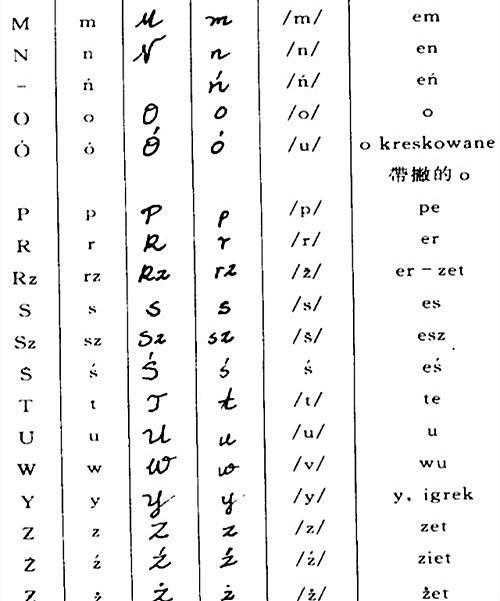 M m M m /m/ em
N n N n /n/ en
– ń ń /ń/ eń
O o O o /o/ o
Ó ó Ó ó /u/ o kreskowane
帶撇的 o
P p P p /p/ pe
R r R r /r/ er
Rz rz Rz rz /ž/ er – zet
S s S s /s/ es
Sz sz Sz sz /š/ esz
Ś ś Ś ś ś eś
T t T t /t/ te
U u U u /u/ u
W w W w /v/ wu
Y y Y y /y/ y, igrek
Z z Z z /z/ zet
Ź ź Ź ź /ź/ ziet
Ż ż Ż ż /ž/ żet